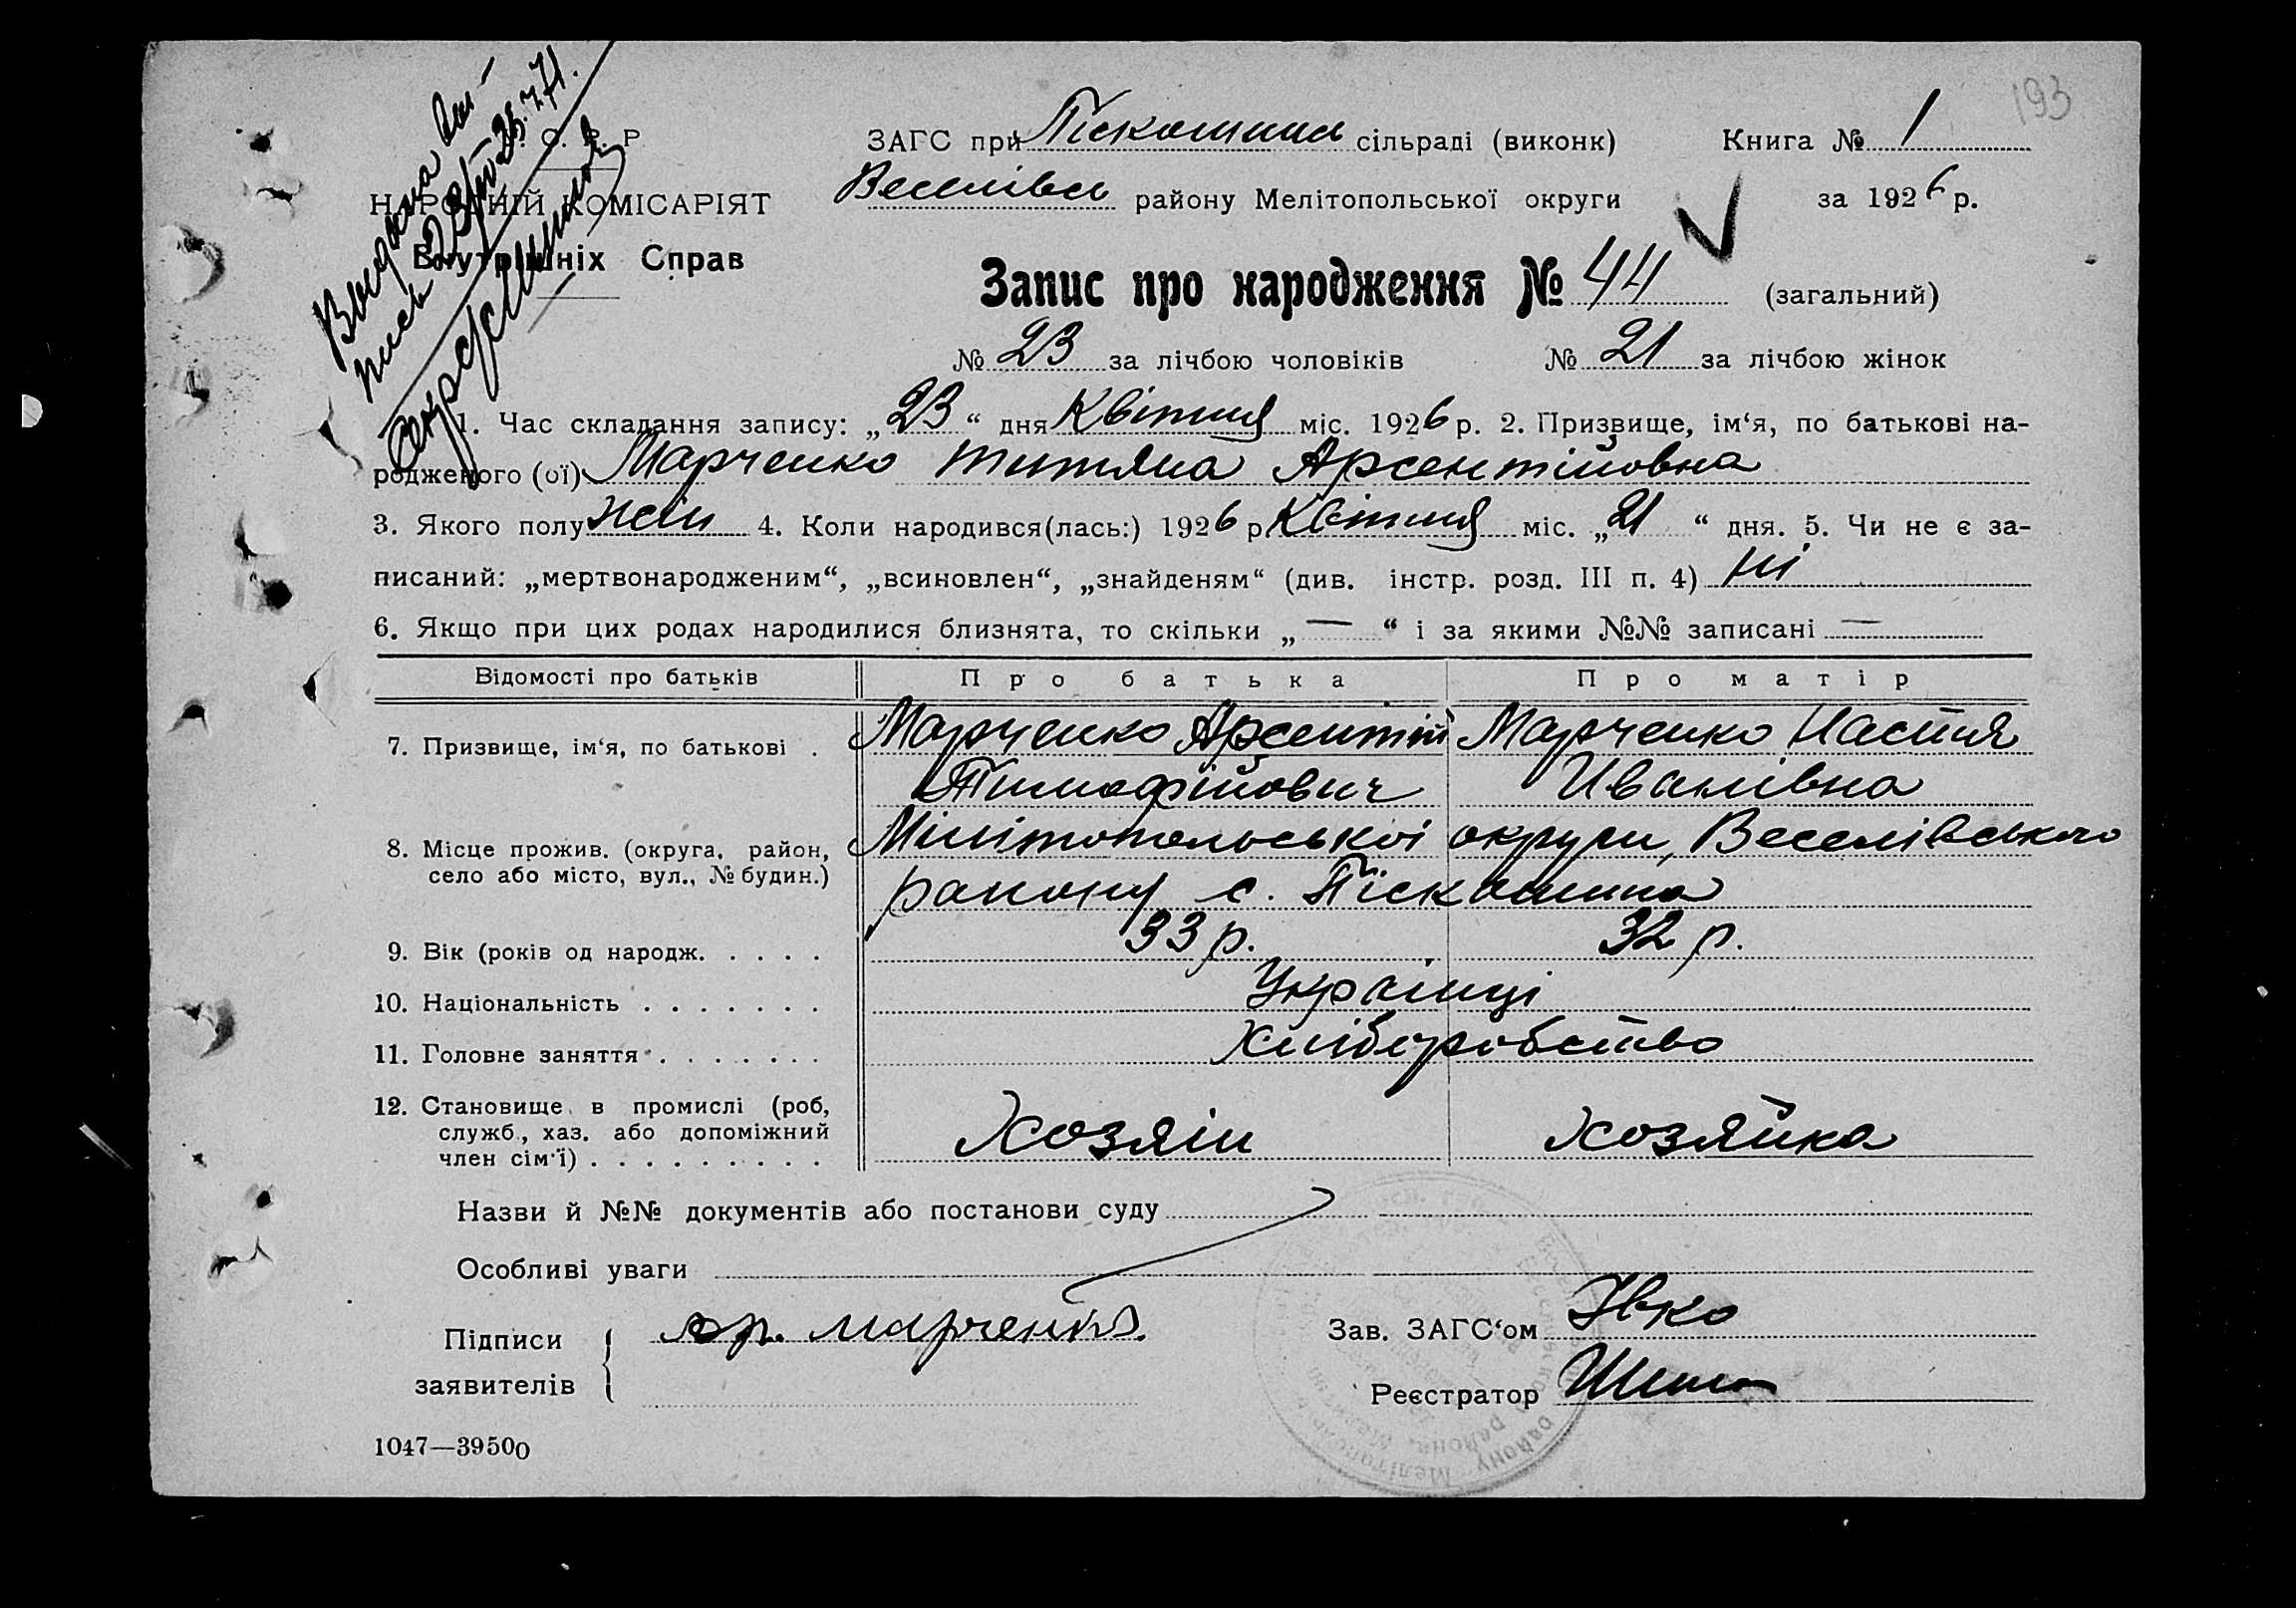 193
С. Р. Р
НАРОДНІЙ КОМІСАРІЯТ
Внутрішніх Справ
Выдана
ЗАГС при Піскошина сільраді (виконк)
Книга № 1
Веселівск району Мелітопольської округи
за 1926 р.
Запис про народження № 44 (загальний)
№ 23 за лічбою чоловіків № 21 за лічбою жінок
1. Час складання запису: „23“ дня Квітня міс. 1926 р. 2. Призвище, ім‘я, по батькові на-
родженого (ої) Марченко Титяна Арсентійовна
3. Якого полу жін 4. Коли народився(лась:) 1926 р Квітня міс. „21“ дня. 5. Чи не є за-
писаний: „мертвонародженим“, „всиновлен“, „знайденям“ (див. інстр. розд. III п. 4) Ні
6. Якщо при цих родах народилися близнята, то скільки „—“ і за якими №№ записані —
Відомості про батьків Про батька Про матір
7. Призвище, ім‘я, по батькові . Марченко Арсентій Марченко Настя
Тимофійович Иванівна
8. Місце прожив. (округа, район, Мілітопольської округи, Веселівського
село або місто, вул., № будин.) району с. Піскошина
9. Вік (років од народж. . . . . 33 р. 32 р.
10. Національність . . . . . . . Українці
11. Головне заняття . . . . . . . Хліборобство
12. Становище в промислі (роб,
служб., хаз. або допоміжний Хозяін Хозяйка
член сім‘ї) . . . . . . . . .
Назви й №№ документів або постанови суду
Особливі уваги
Підписи ар. марченко.
заявителів
Зав. ЗАГС‘ом
Реєстратор
1047—39500